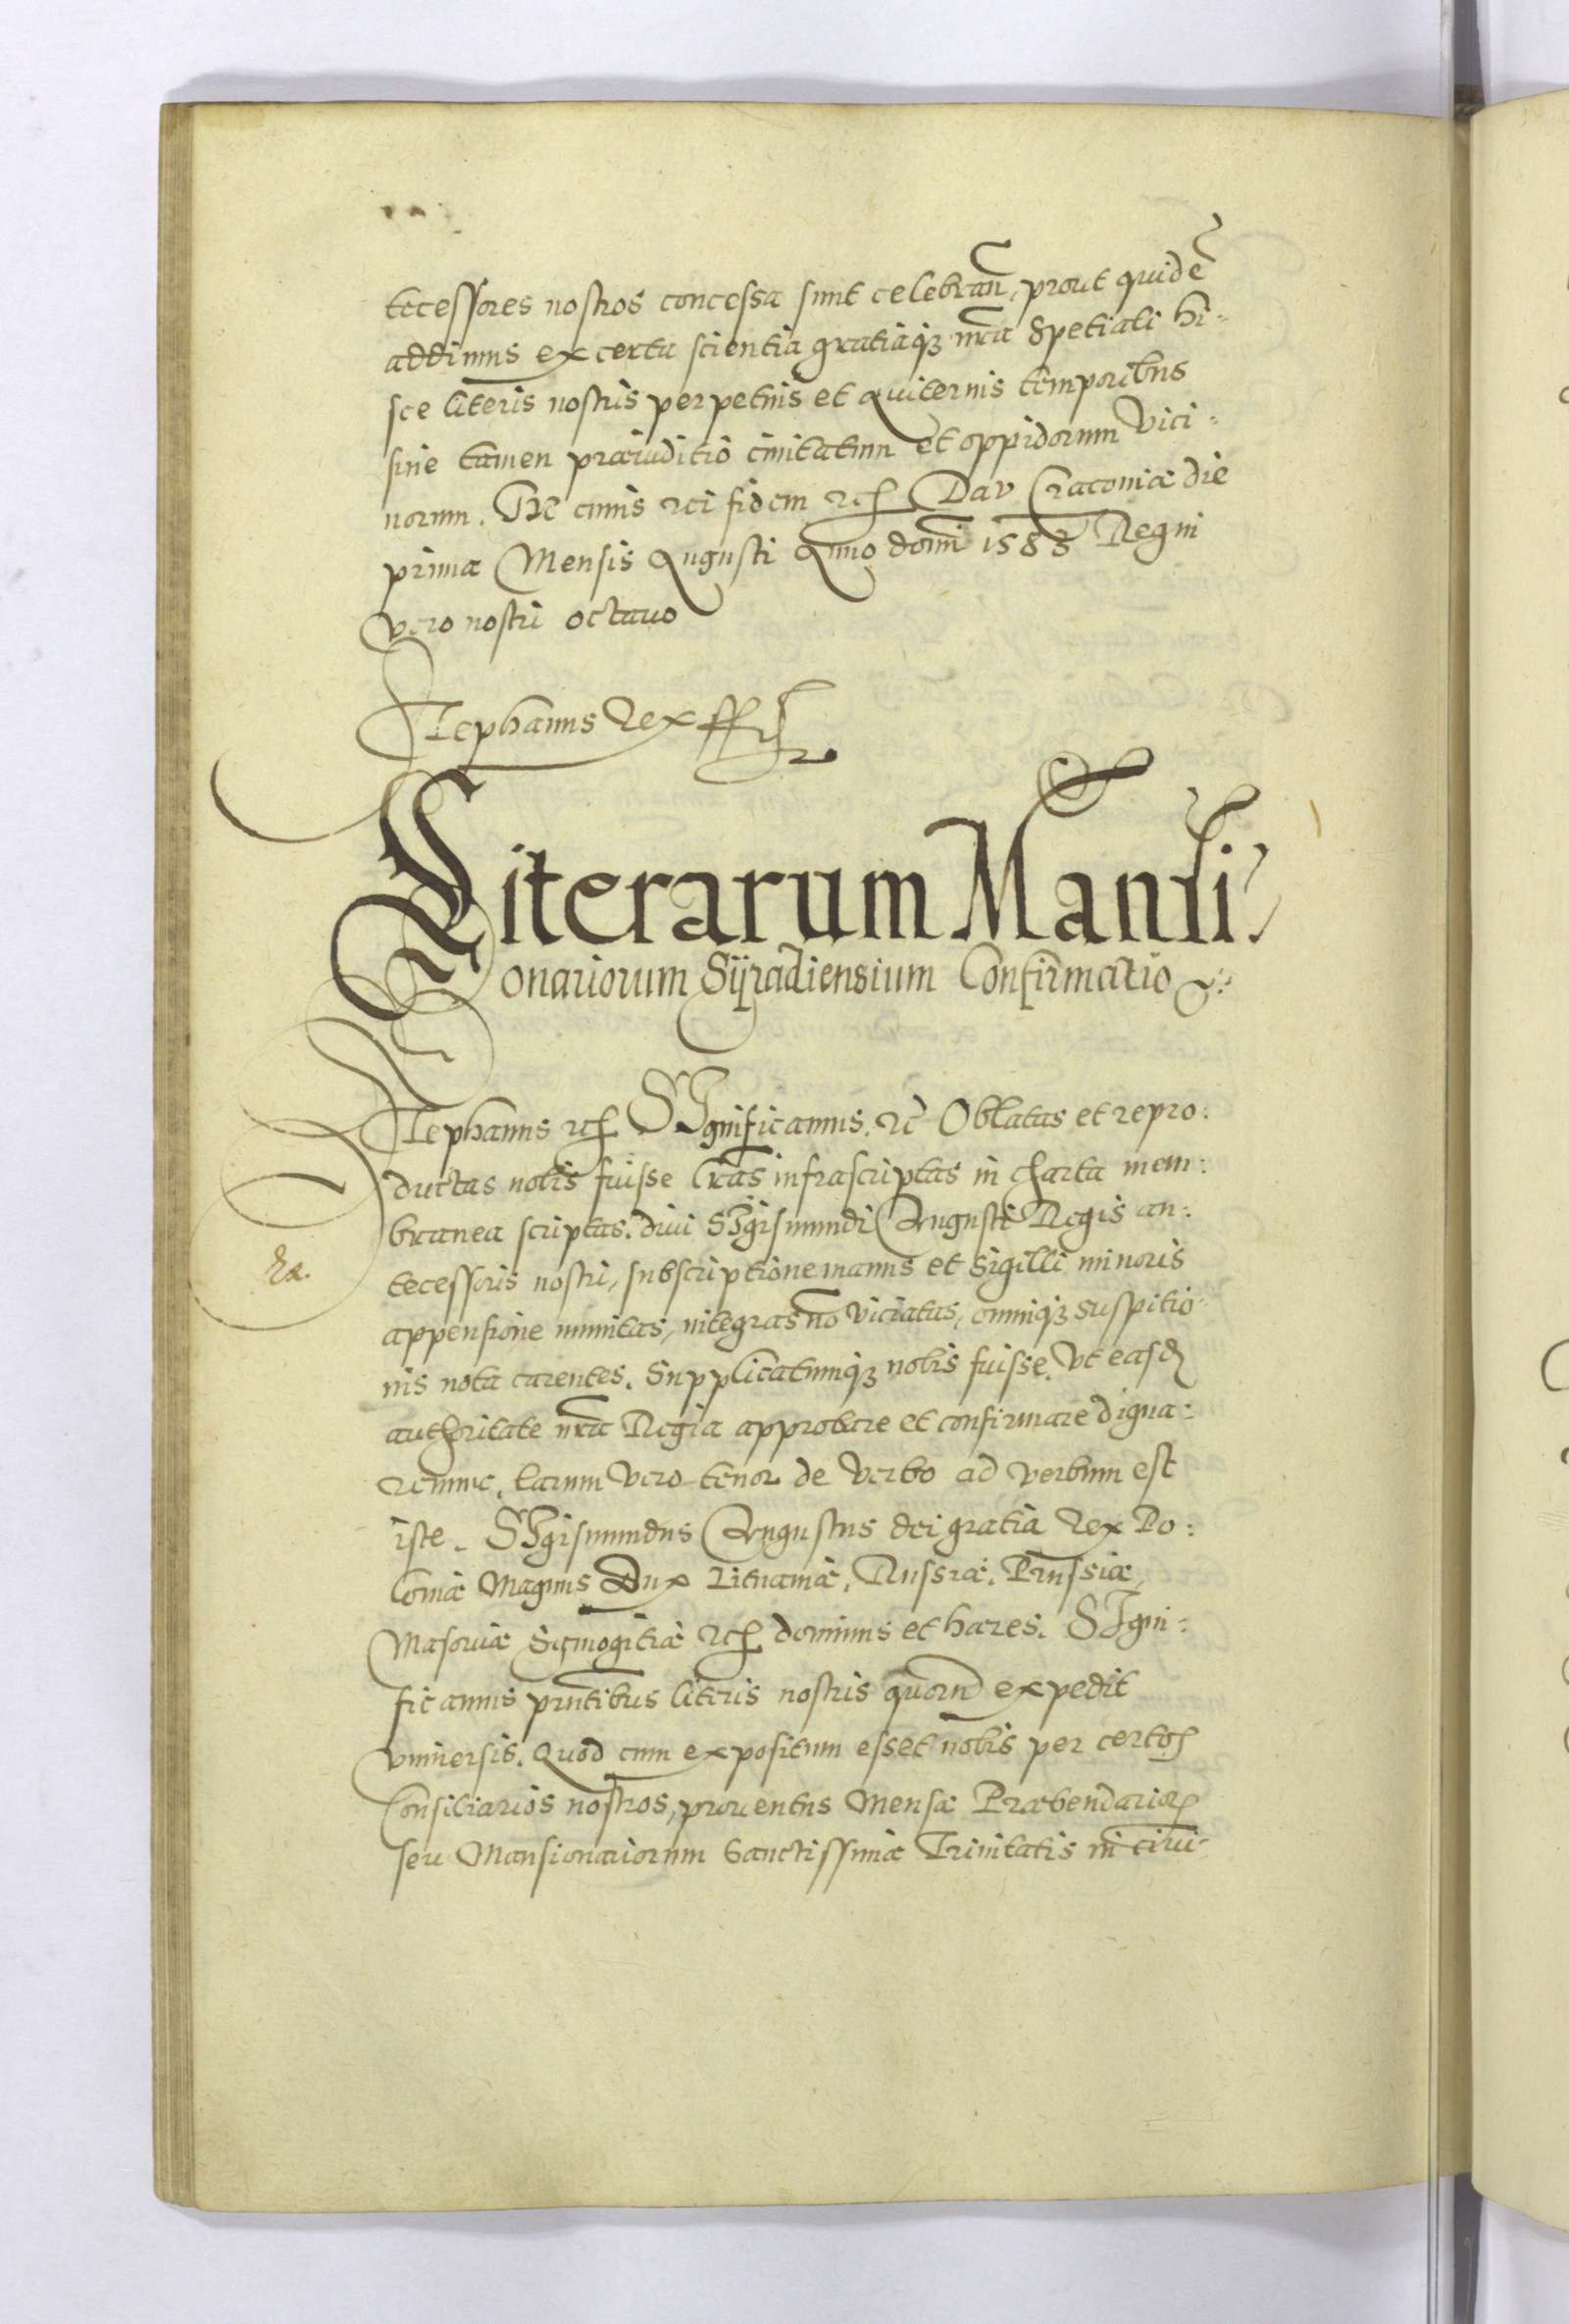 tecessores nostros concessa sunt celebran, prout quidē
addimus ex certa scientia gratiaqȝ nr̃a Spetiali hi-
sce literis nostris perpetuis et æuiternis temporibus
sine tamen præiuditio ciuitatum et oppidorum vici-
norum. In cuius rei fidem etc Dat Cracouiæ die
prima Mensis Augusti Anno domi 1583 Regni
vero nostri octauo
Stephanus Rex
Literarum Mansi
onariorum Syradiensium Confirmatio
Stephanus etc SIgnificamus. etc Oblatas et repro:
ductas nobis fuisse lr̃as infrascriptas in charta mem:
branea scriptas. diui SIgismundi Augusti Regis an:
tecessoris nostri, subscriptione manus et Sigilli minoris
appensione munitas, integras nō viciatas, omniqȝ suspitio
nis nota carentes. Supplicatumqȝ nobis fuisse, vt easd
authoritate nr̃a Regia approbare et confirmare digna:
remur, earum vero tenor de verbo ad verbum est
iste. SIgismundus Augustus dei gratia Rex Po:
loniæ Magnus Dux Lituaniæ, Russiæ, Prussiæ,
Masouiæ Samogitiæ etc dominus et hæres. SIgni:
ficamus prñtibus literis nostris quorū expedit
vniuersis. Quod cum expositum esset nobis per certos
Consiliarios nostros, prouentus Mensæ Præbendarior
seu Mansionariorum Sanctissimæ Trinitatis in ciui-